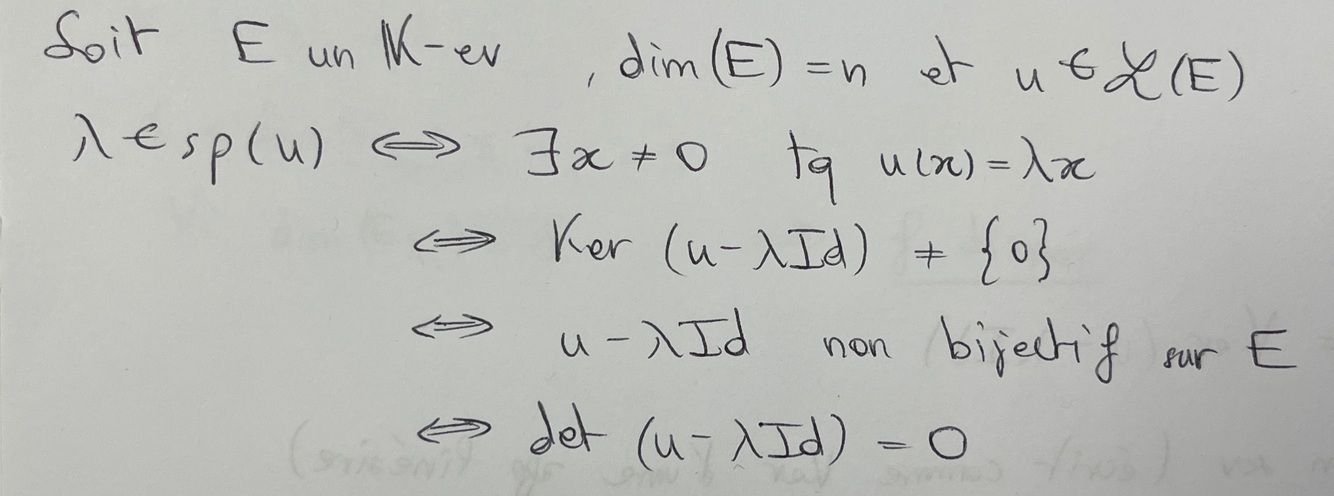 Soit E un 𝕂-ev , dim(E) = n et u ∈ ℒ(E)
λ ∈ sp(u) ⟺ ∃x ≠ 0 tq u(x) = λx
⟺ Ker (u - λId) ≠ {0}
⟺ u - λId non bijectif sur E
⟺ det (u - λId) = 0